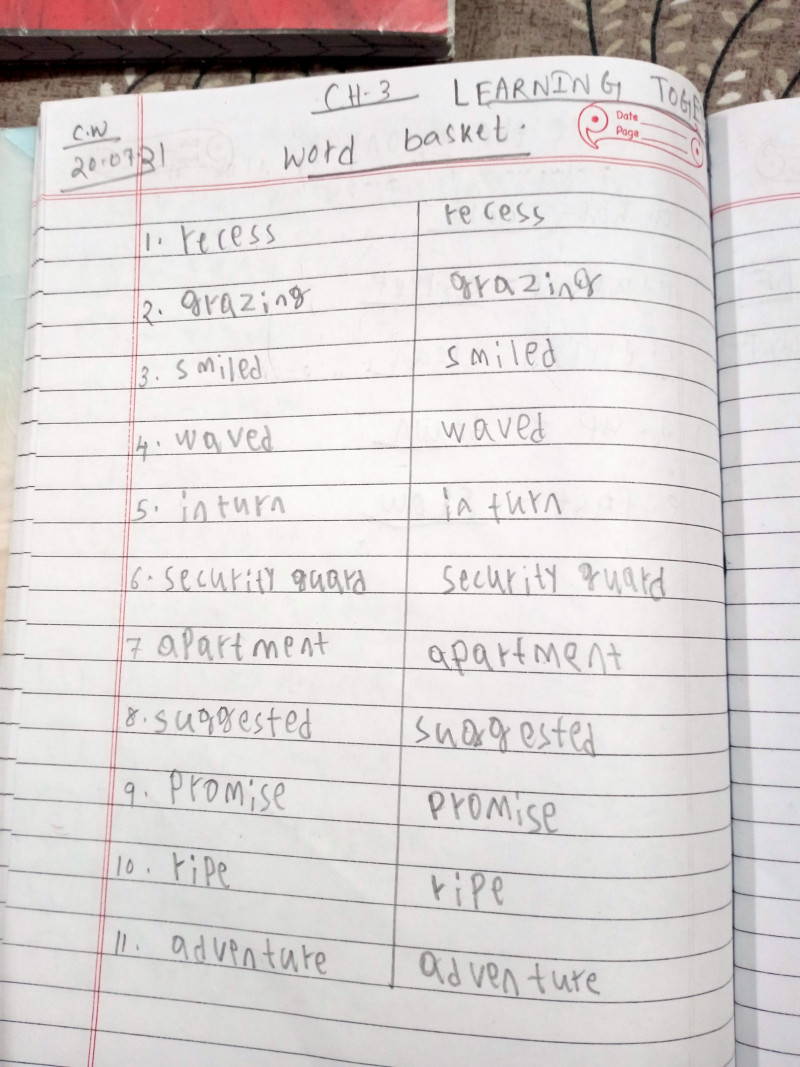 CH-3 LEARNING TOGE
C.W
20.07.21
word basket.
Date
Page
1. recess recess
2. grazing grazing
3. smiled smiled
4. waved waved
5. in turn in turn
6. security guard security guard
7 apartment apartment
8. suggested suggested
9. promise promise
10. ripe ripe
11. adventure adventure